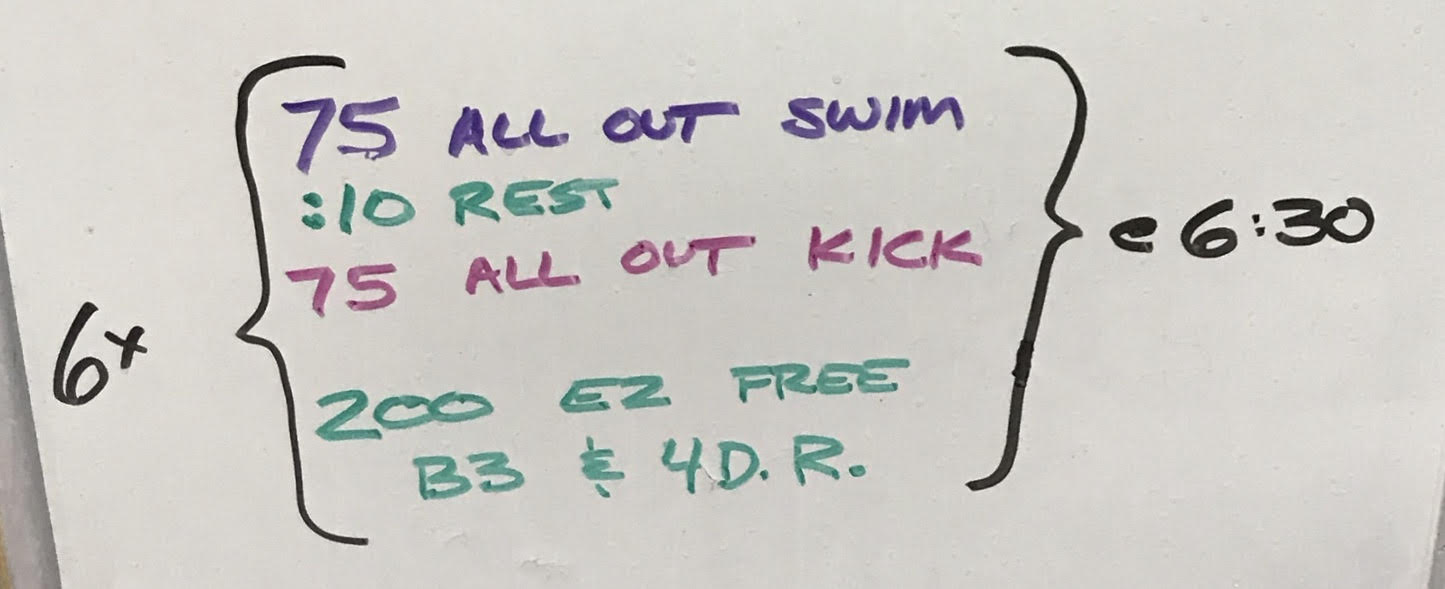 6x
75 ALL OUT SWIM
:10 REST
75 ALL OUT KICK
200 EZ FREE
B3 & 4 D.R.
@ 6:30